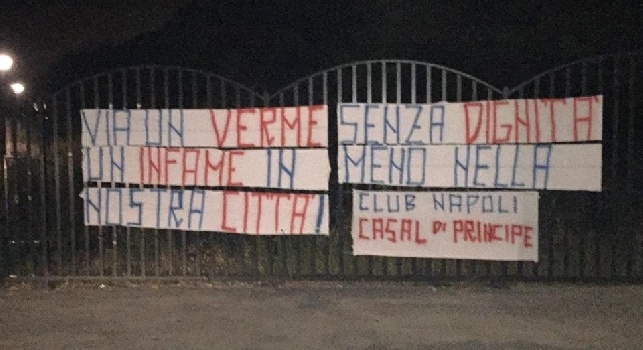 VIA UN VERME SENZA DIGNITA'
UN INFAME IN MENO NELLA
NOSTRA CITTA'!
CLUB NAPOLI
CASAL DI PRINCIPE